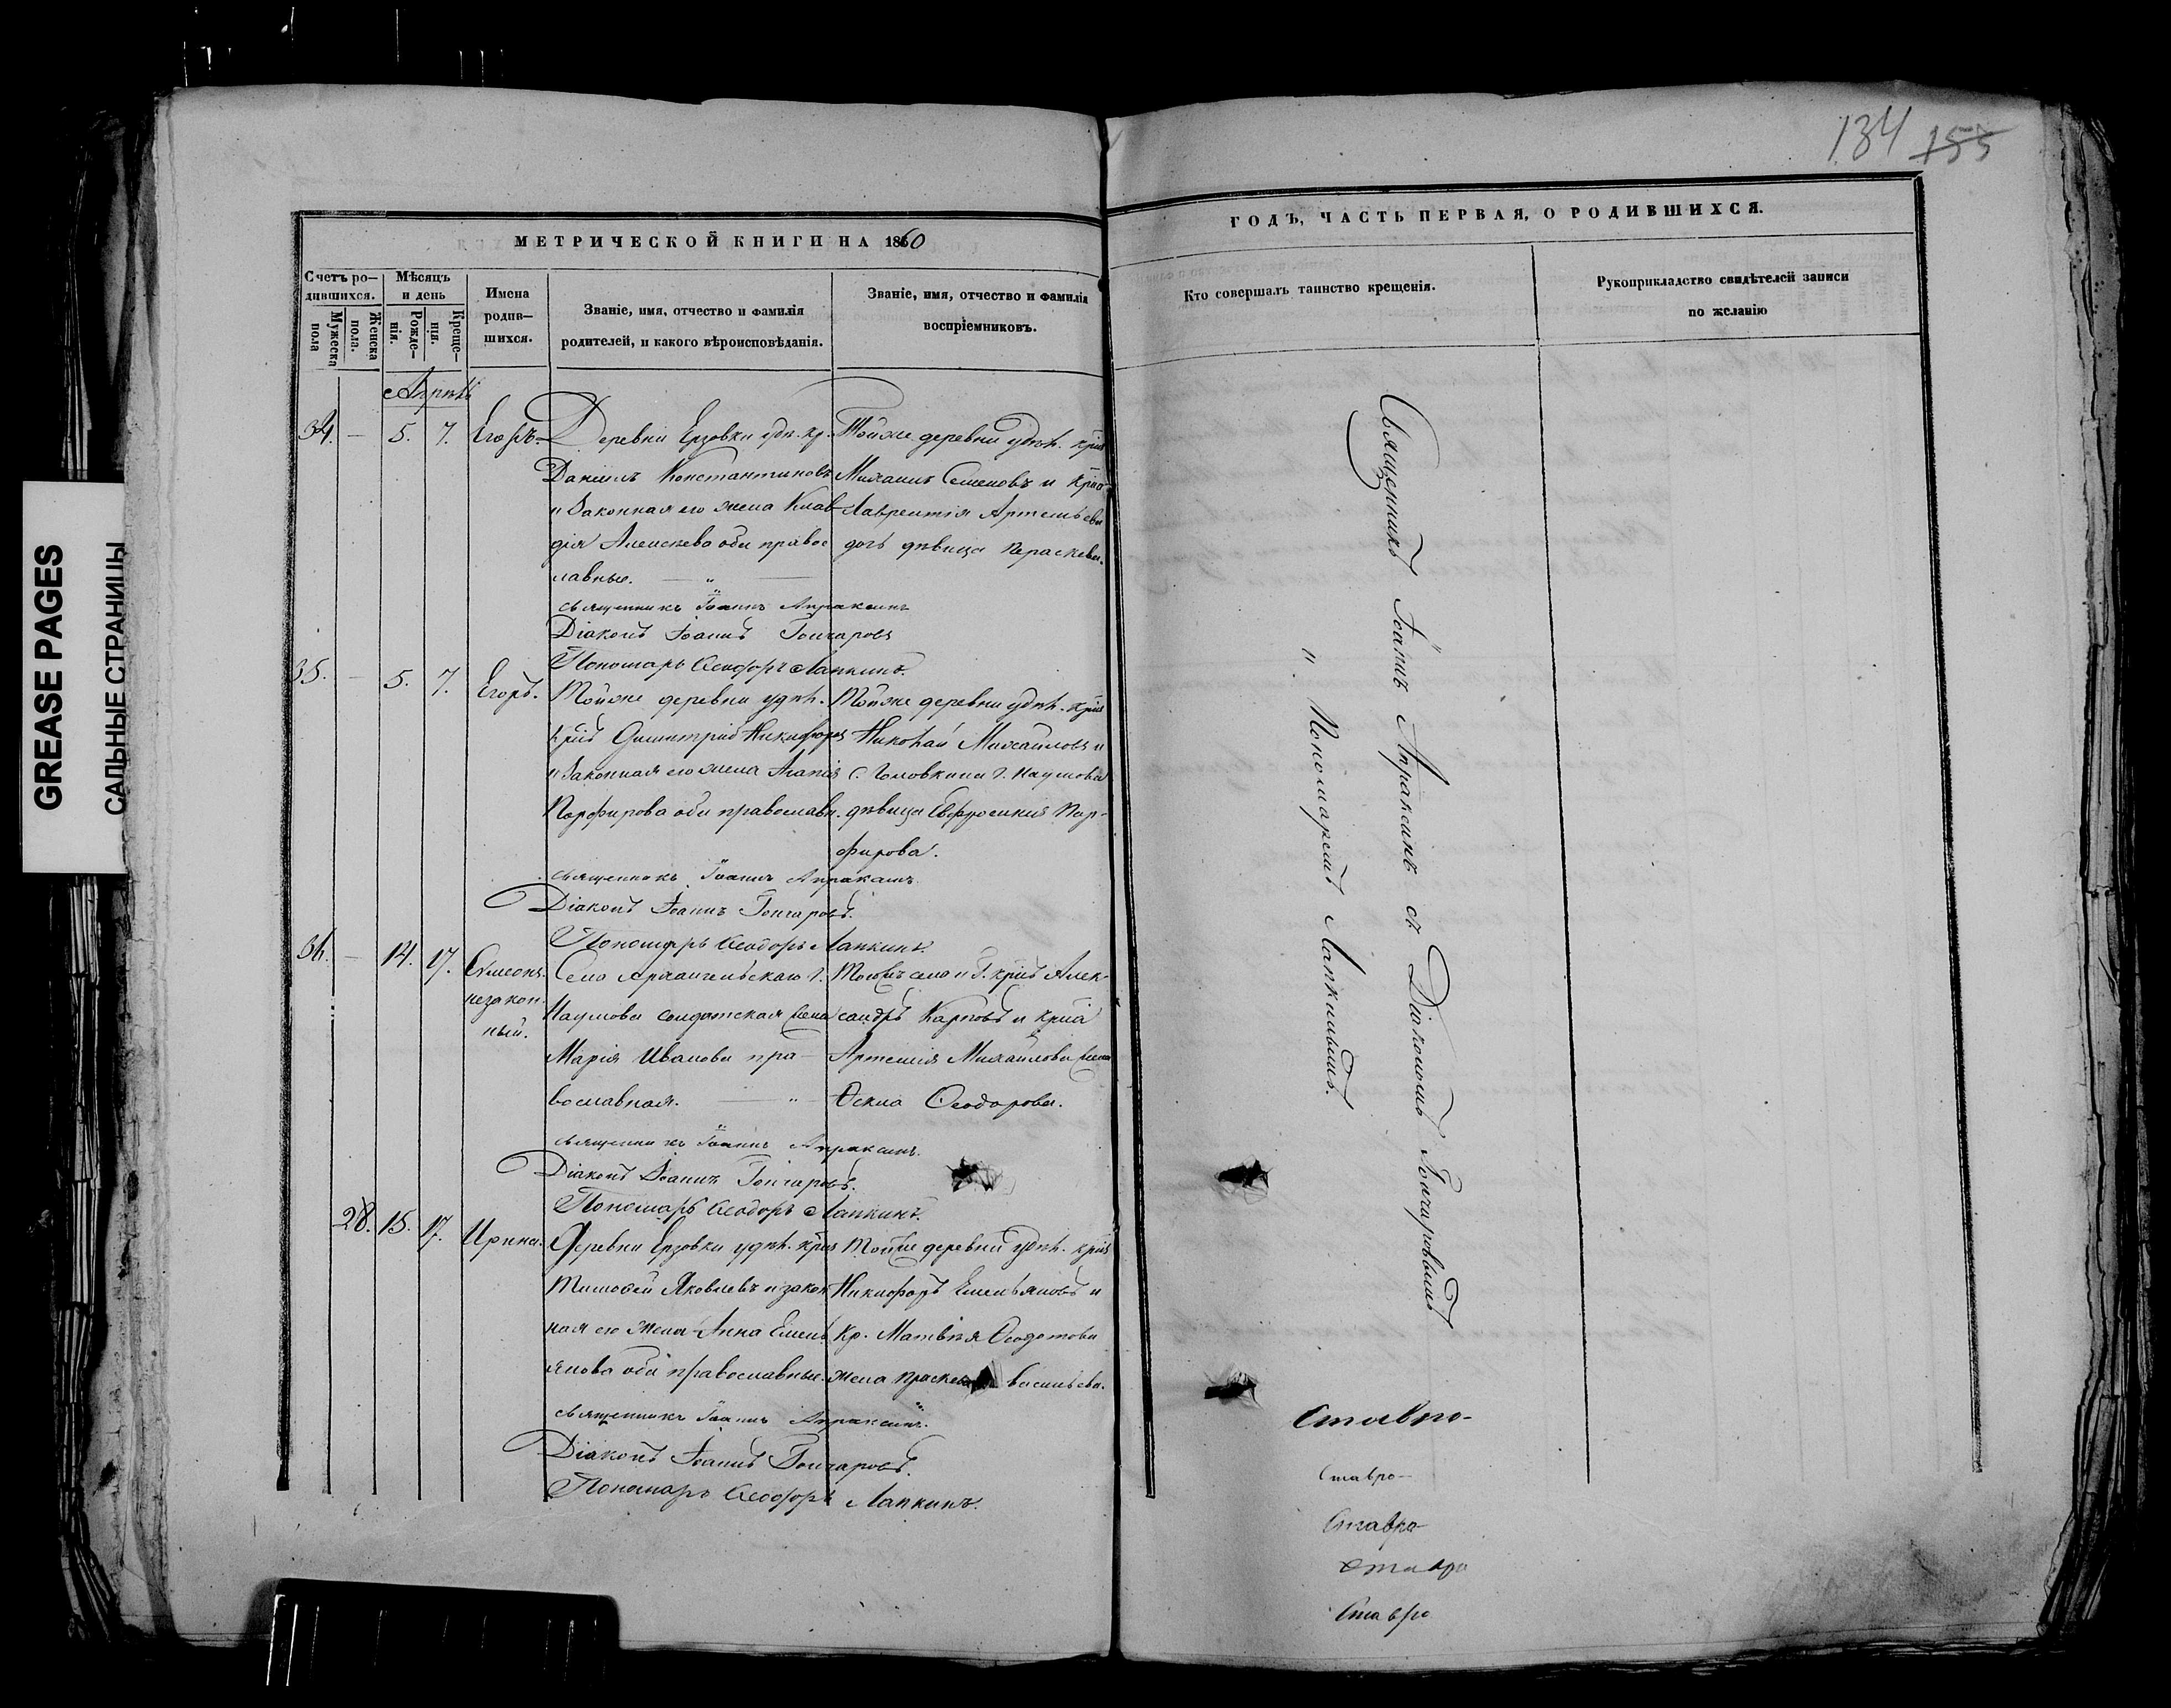 GREASE PAGES
САЛЬНЫЕ СТРАНИЦЫ
МЕТРИЧЕСКОЙ КНИГИ НА 1860
Счетъ ро-
дившихся.
Мужеска
пола
Женска
пола.
Мѣсяцъ
и день
Рожде-
нія.
Креще-
нія.
Имена
родив-
шихся.
Званіе, имя, отчество и фамилія
родителей, и какого вѣроисповѣданія.
Званіе, имя, отчество и фамилія
воспріемниковъ.
Апрѣль
34. — 5. 7. Егоръ.
Деревни Ерзовки удѣ. кр.
Даніилъ Константиновъ
и законная его жена Клав-
дія Алексѣева оба правос
лавные. — „ —
Тойже деревни удѣл.
Михаилъ Семеновъ и
Лаврентія Артемьева
дочь дѣвица Параскева.
священникъ Іоаннъ Апраксинъ
Діаконъ Іоаннъ Гончаровъ
Пономарь Ѳеодоръ Лапкинъ.
35. — 5. 7. Егоръ.
Тойже деревни удѣл.
Димитрій Никифоровъ
и законная его жена Агапія
Порфирова оба православн.
Тойже деревни удѣл.
Николай Михайловъ и
с. Головкина г. Наумова
дѣвица Евфросинія Пор-
фирова.
священникъ Іоаннъ Апраксинъ.
Діаконъ Іоаннъ Гончаровъ.
Пономарь Ѳеодоръ Лапкинъ.
36. — 14. 17. Сѵмеонъ.
незакон-
ный.
Село Архангельскаго г.
Наумова солдатская жена
Марія Иванова пра-
вославная. — „
села и г. Алек-
сандръ Карповъ и
Артемія Михайлова жена
Ѳекла Ѳеодорова.
священникъ Іоаннъ Апраксинъ.
Діаконъ Іоаннъ Гончаровъ.
Пономарь Ѳеодоръ Лапкинъ.
28. 15. 17. Ирина.
Деревни Ерзовки удѣл.
Тимоѳей Яковлевъ и закон
ная его жена Анна Емель
янова оба православные.
Тойже деревни удѣл.
Никифоръ Емельяновъ и
кр. Матвѣя Ѳеодотова
жена Васильева.
священникъ Іоаннъ Апраксинъ.
Діаконъ Іоаннъ Гончаровъ.
Пономарь Ѳеодоръ Лапкинъ.
134 155
ГОДЪ, ЧАСТЬ ПЕРВАЯ, О РОДИВШИХСЯ.
Кто совершалъ таинство крещенія.
Рукоприкладство свидѣтелей записи
по желанію
Священникъ Іоаннъ Апраксинъ съ Діакономъ Гончаровымъ
и Пономаремъ Лапкинымъ.
Ставро-
Ставро-
Ставро-
Ставро
Ставро